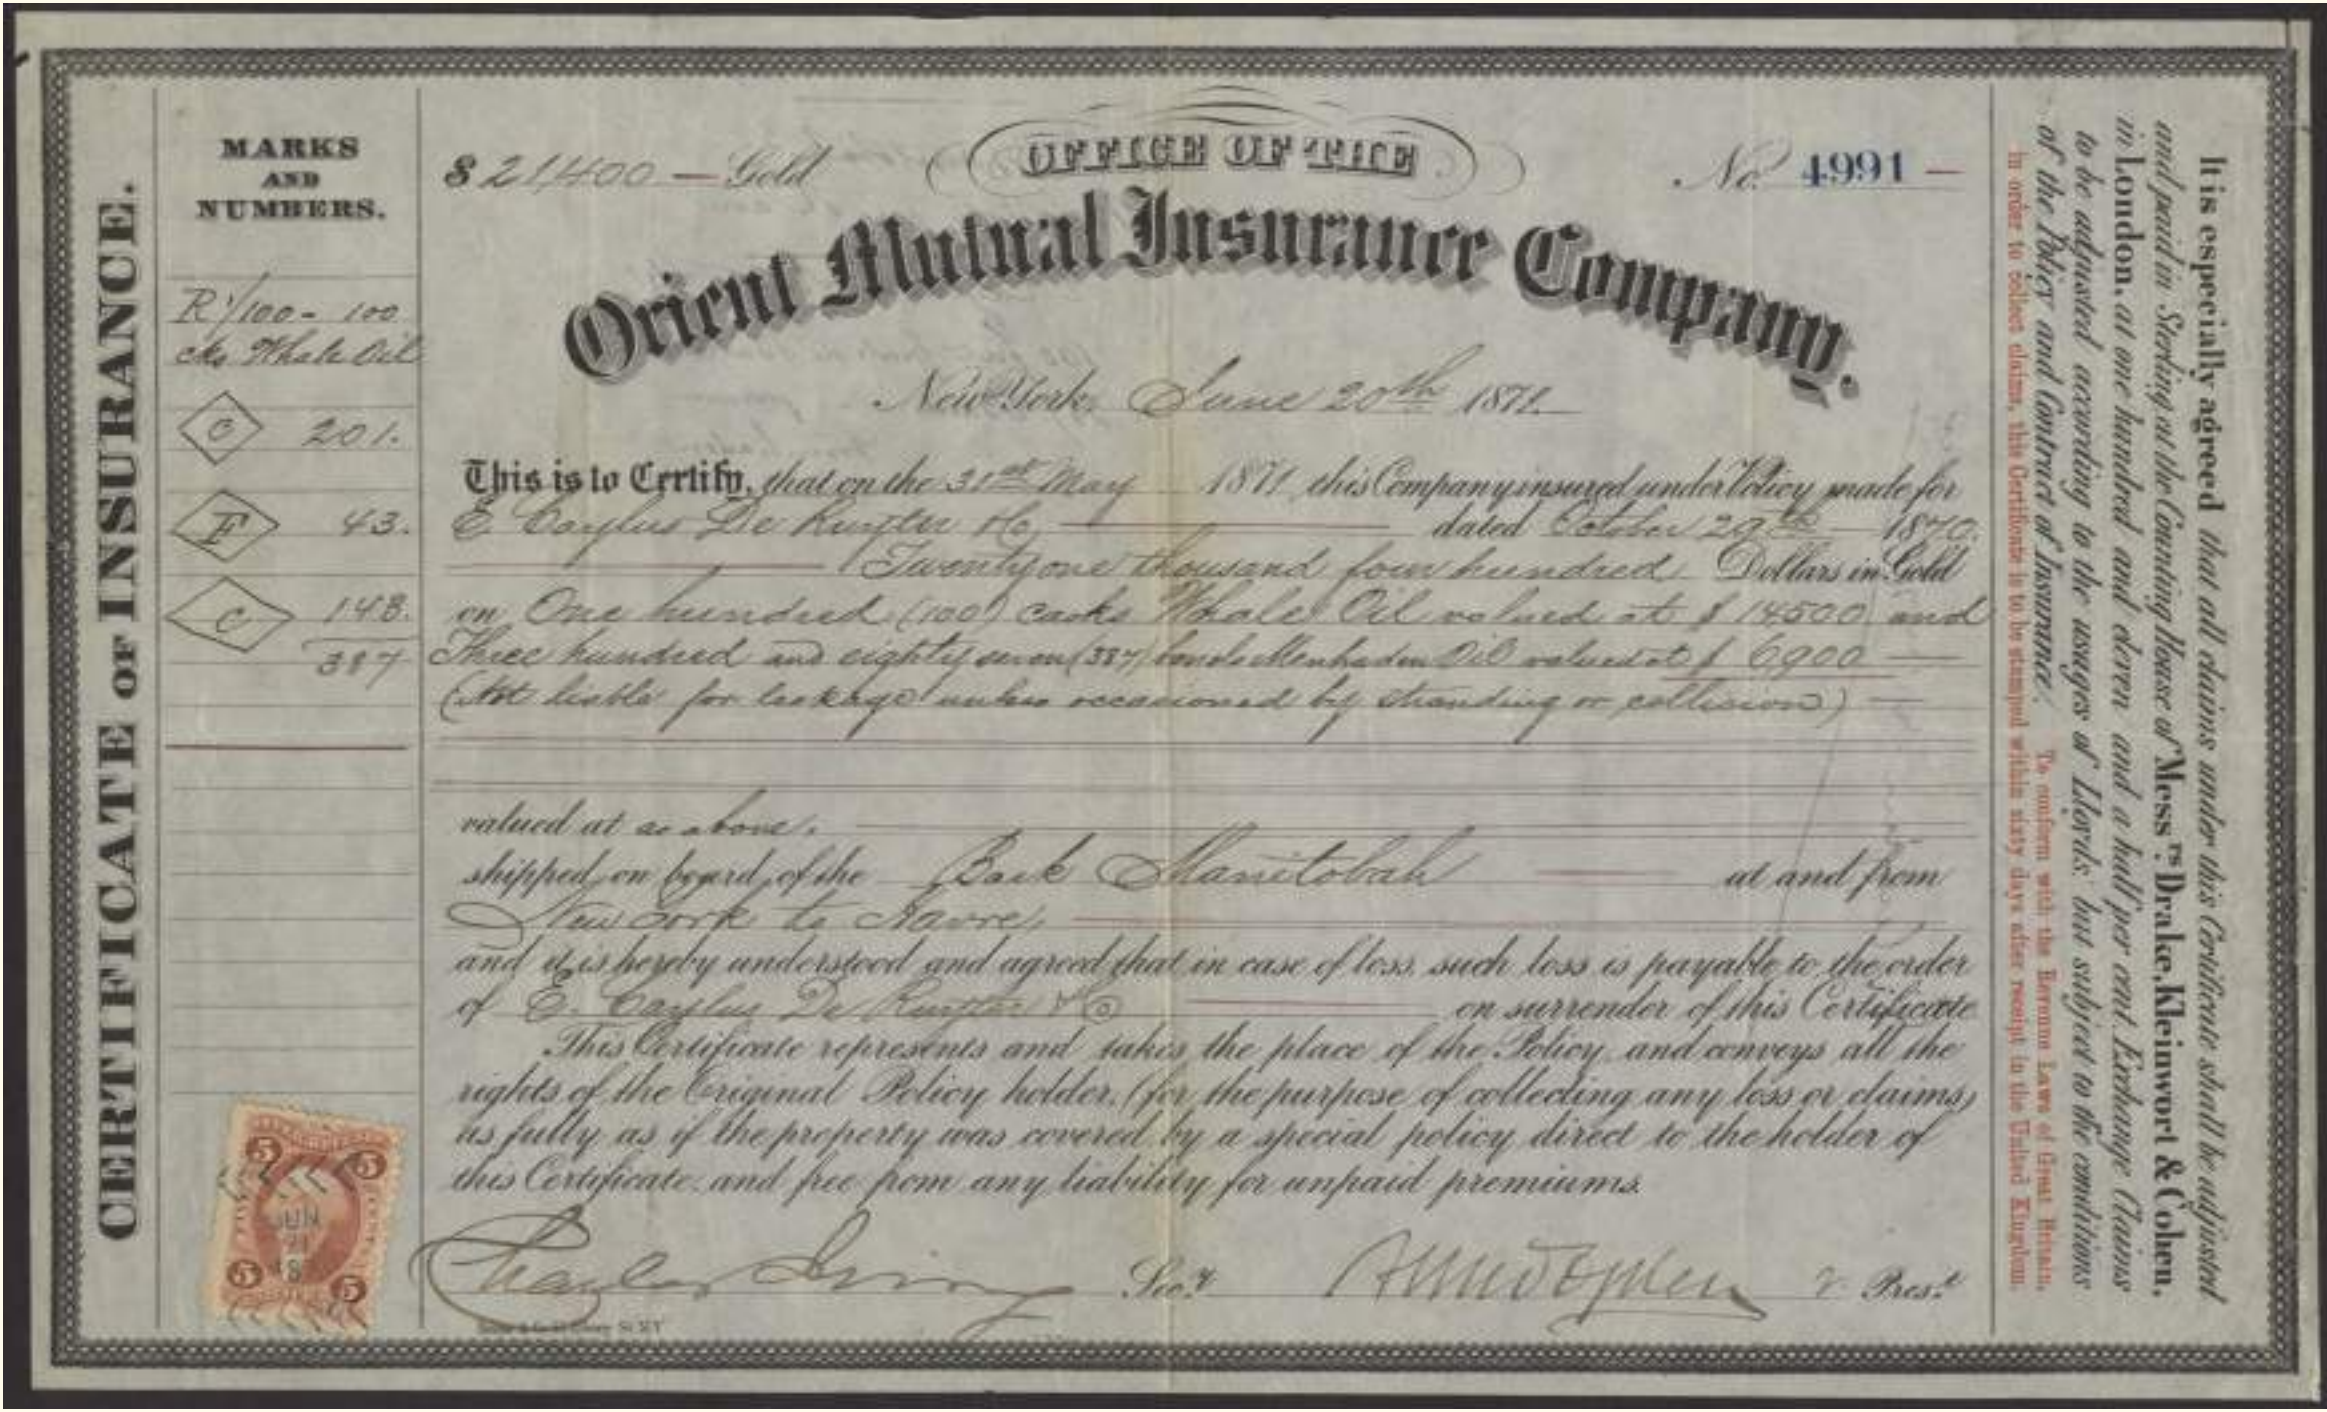 CERTIFICATE OF INSURANCE.
MARKS
AND
NUMBERS.
R 1/100 - 100
cks Whale Oil
C 201.
F 43.
C 143.
387
$21,400 — Gold
OFFICE OF THE
No. 4991 —
Orient Mutual Insurance Company.
New York, June 20th 1871.
This is to Certify, that on the 31st May 1871, this Company insured under Policy made for
E. Caylus De Ruyter & Co dated October 29th 1870.
Twenty one thousand four hundred Dollars in Gold
on One hundred (100) casks Whale Oil valued at $14500 and
Three hundred and eighty seven (387) Menhaden Oil valued at $6900
(Not liable for leakage unless occasioned by stranding or collision)
valued at as above.
shipped on board of the Bark Manitobah at and from
New York to Havre,
and it is hereby understood and agreed that in case of loss, such loss is payable to the order
of E. Caylus De Ruyter & Co on surrender of this Certificate
This Certificate represents and takes the place of the Policy, and conveys all the
rights of the Original Policy holder, (for the purpose of collecting any loss or claims)
as fully, as if the property was covered by a special policy direct to the holder of
this Certificate, and free from any liability for unpaid premiums.
Charles Irving Secy.
2 Prest.
5 5
JUN
5 5
It is especially agreed that all claims under this Certificate shall be adjusted
and paid in Sterling at the Counting House of Messrs. Drake, Kleinwort & Cohen,
in London, at one hundred and eleven and a half per cent. Exchange. Claims
to be adjusted according to the usages of Lloyds, but subject to the conditions
of the Policy and Contract of Insurance. To conform with the Revenue Laws of Great Britain,
in order to collect claims, this Certificate is to be stamped within sixty days after receipt in the United Kingdom.